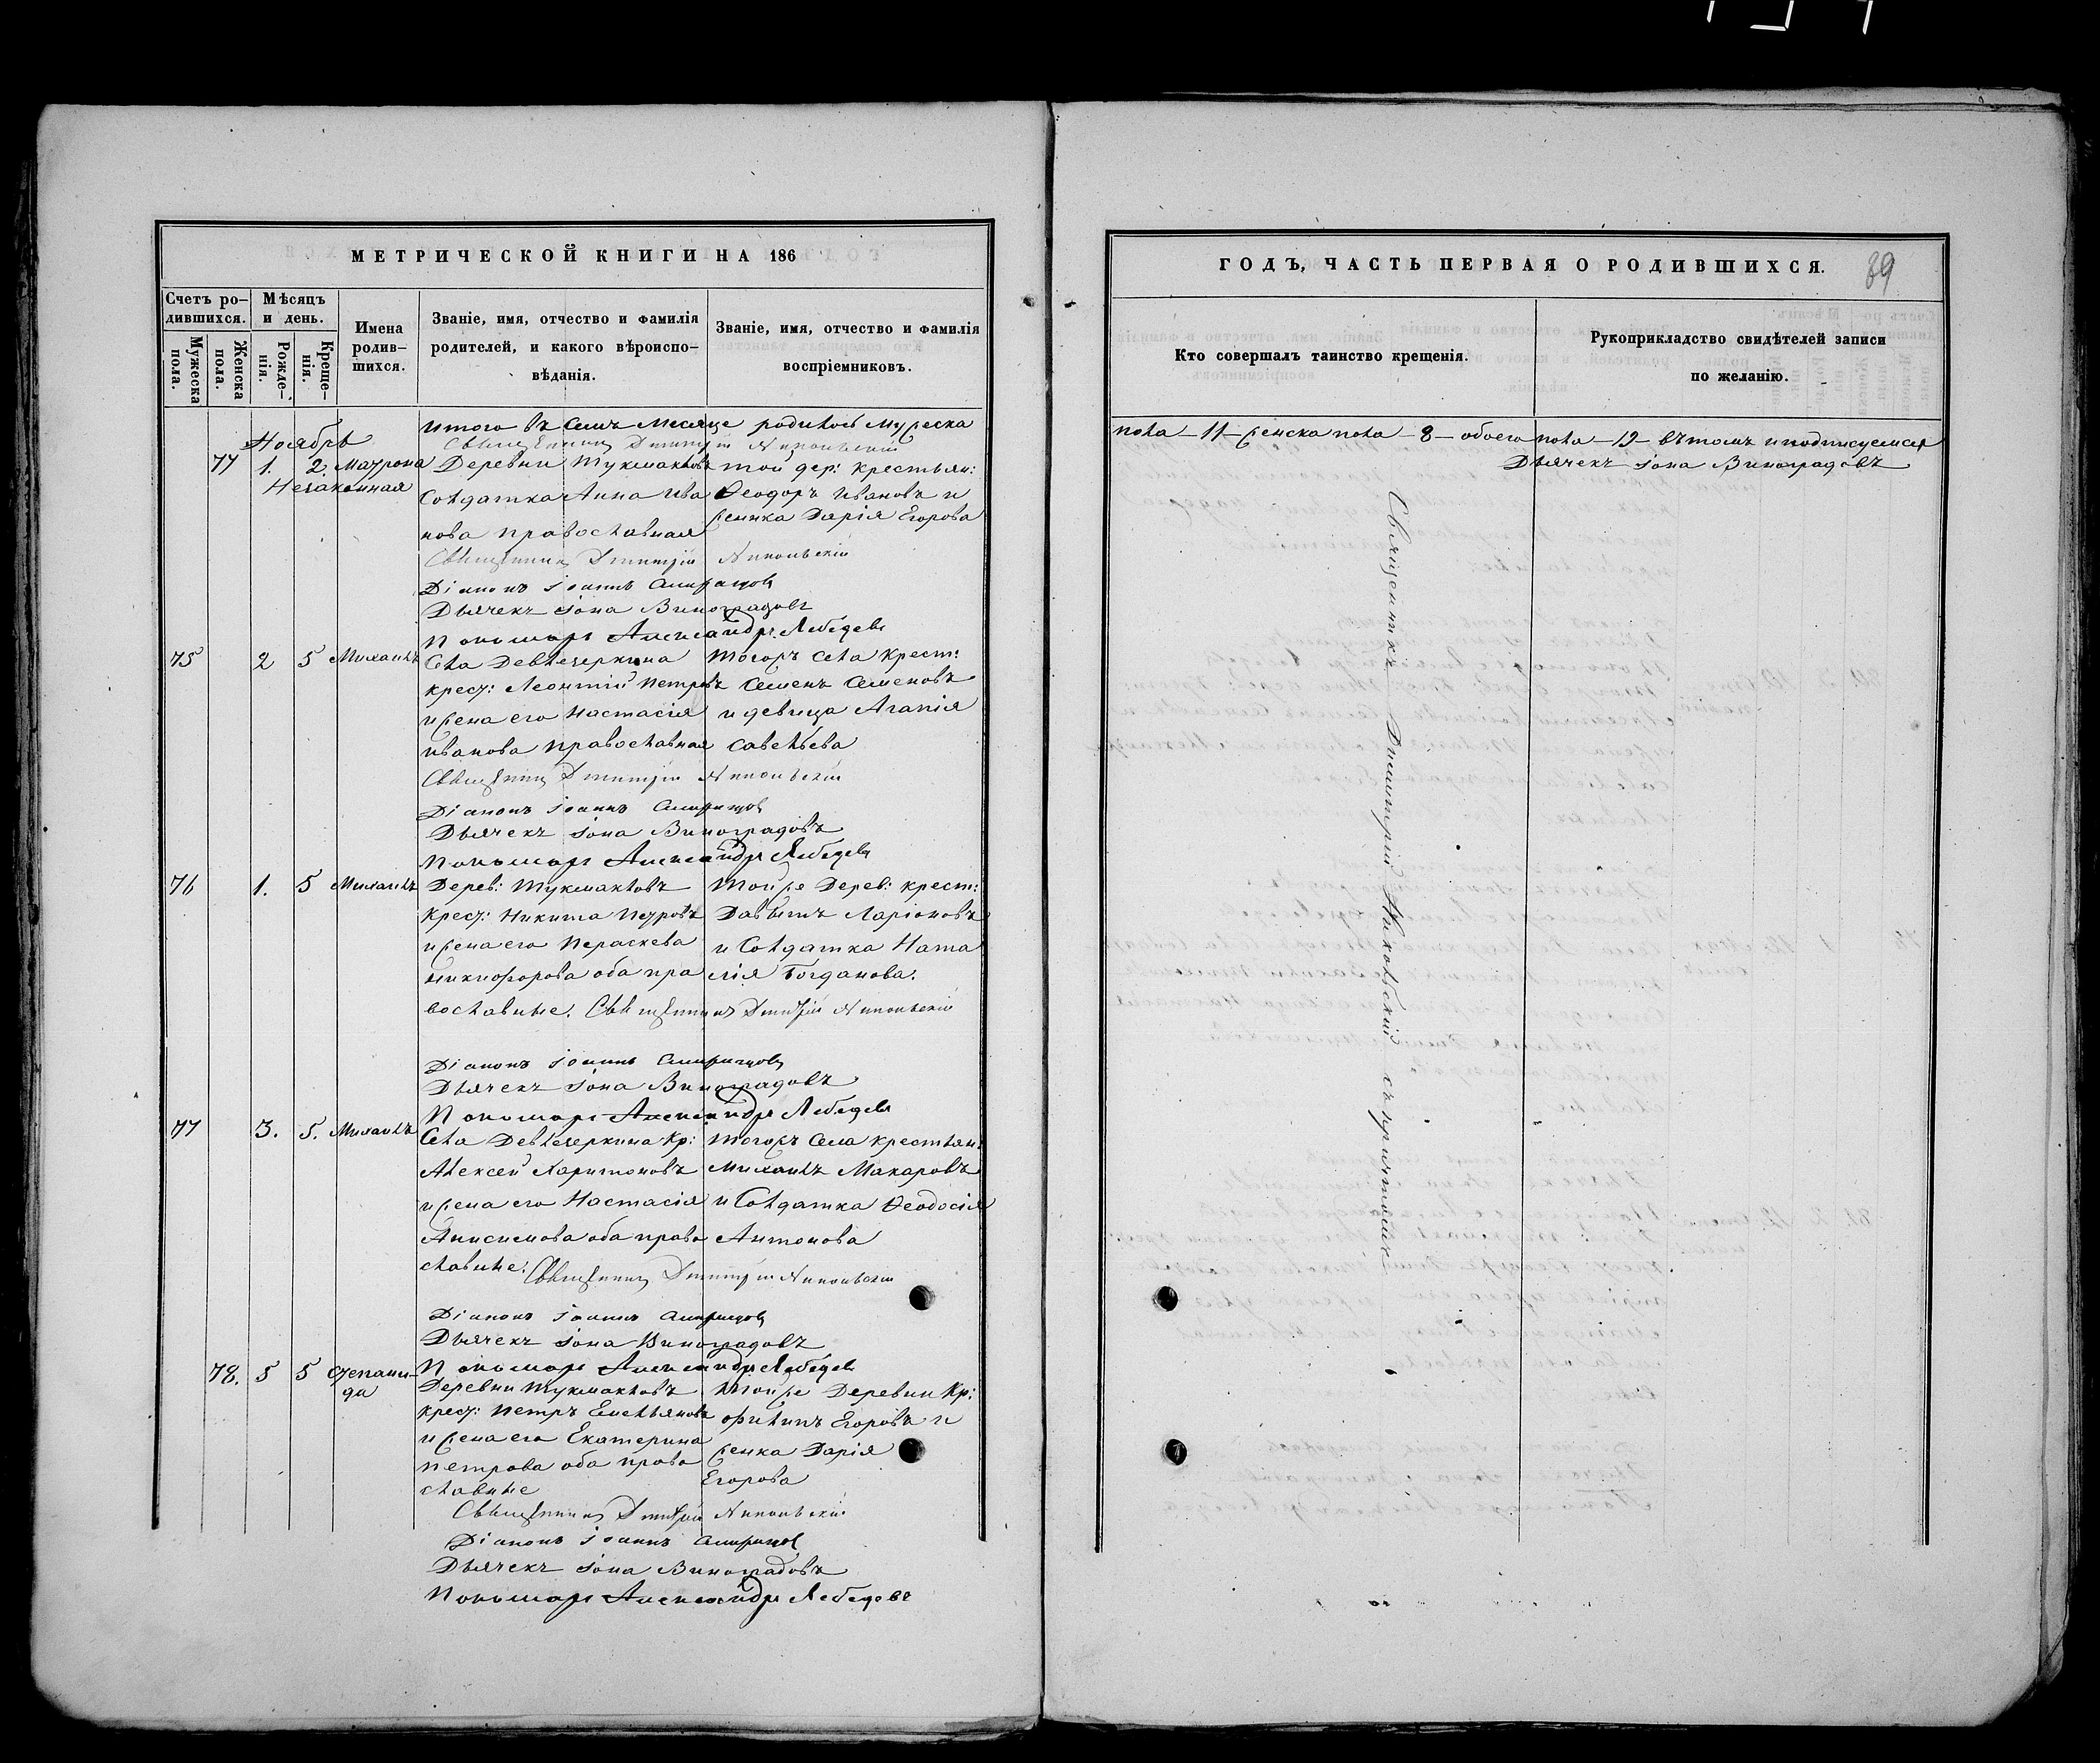 МЕТРИЧЕСКОЙ КНИГИ НА 186
Счетъ ро-
дившихся.
Мужеска
пола.
Женска
пола.
Мѣсяцъ
и день.
Рожде-
нія.
Креще-
нія.
Имена
родив-
шихся.
Званіе, имя, отчество и фамилія
родителей, и какого вѣроиспо-
вѣданія.
Званіе, имя, отчество и фамилія
воспріемниковъ.
Итого въ семъ месяце родилось мужеска
Священникъ Димитрій Никольскій
Ноябрь
77 1. 2. Матрона
Незаконная
Деревни Тукмакловъ
Солдатка Анна Ива
нова православная
той дер: крестьян:
Ѳеодоръ Ивановъ и
женка Дарія Егорова
Священникъ Димитрій Никольскій
Діаконъ Іоаннъ
Дьячекъ Іона Виноградовъ
Пономарь Александръ Лебедевъ
75 2 5 Михаилъ
Села Девлезеркина
крест: Леонтій Петровъ
и жена его Настасія
Иванова православная
тогожъ села Крест:
Семенъ Семеновъ
и девица Агапія
Савельева
Священникъ Димитрій Никольскій
Діаконъ Іоаннъ
Дьячекъ Іона Виноградовъ
Пономарь Александръ Лебедевъ
76 1. 5 Михаилъ
Дерев: Тукмакловъ
Крест: Никита Петровъ
и жена его Пераскева
Никифорова оба пра
вославные.
Тойже Дерев: крест:
Давыдъ Ларіоновъ
и Солдатка Ната
лія Богданова.
Священникъ Димитрій Никольскій
Діаконъ Іоаннъ
Дьячекъ Іона Виноградовъ
Пономарь Александръ Лебедевъ
77 3. 5. Михаилъ
Села Девлезеркина Кр:
Алексей Харитоновъ
и жена его Настасія
Анисимова оба право
славные.
Тогожъ Села крестьян:
Михаилъ Макаровъ
и Солдатка Ѳеодосія
Антонова
Священникъ Димитрій Никольскій
Діаконъ Іоаннъ
Дьячекъ Іона Виноградовъ
Пономарь Александръ Лебедевъ
78. 5 5 Степани-
да
Деревни Тукмакловъ
крест: Петръ Емельяновъ
и жена его Екатерина
Петрова оба право
славные
Тойже Деревни Кр:
Филипъ Егоровъ и
женка Дарія
Егорова
Священникъ Димитрій Никольскій
Діаконъ Іоаннъ
Дьячекъ Іона Виноградовъ
Пономарь Александръ Лебедевъ
ГОДЪ, ЧАСТЬ ПЕРВАЯ О РОДИВШИХСЯ.
89
Кто совершалъ таинство крещенія.
Рукоприкладство свидѣтелей записи
по желанію.
пола – 11 – женска пола – 8 – обоего пола – 19 – въ томъ и подписуемся
Дьячекъ Іона Виноградовъ
Священникъ Димитрій Никольскій съ причтомъ